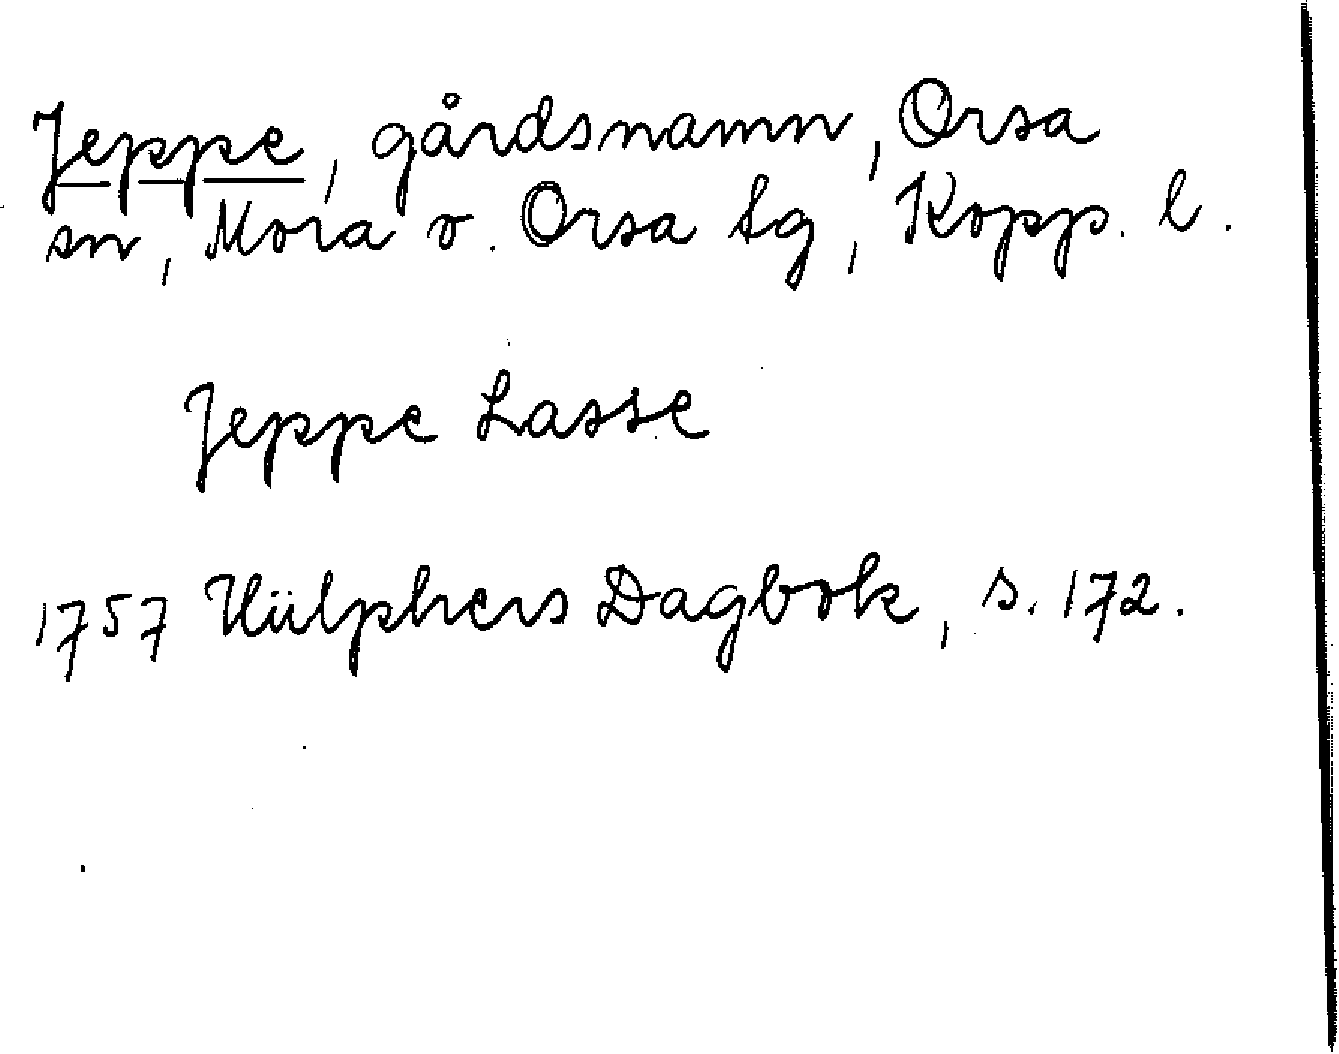 Jeppe, gårdsnamn, Orsa
sn, Mora o. Orsa tg, Kopp. l.
Jeppe Lasse
1757 Hülphers Dagbok, s. 172.